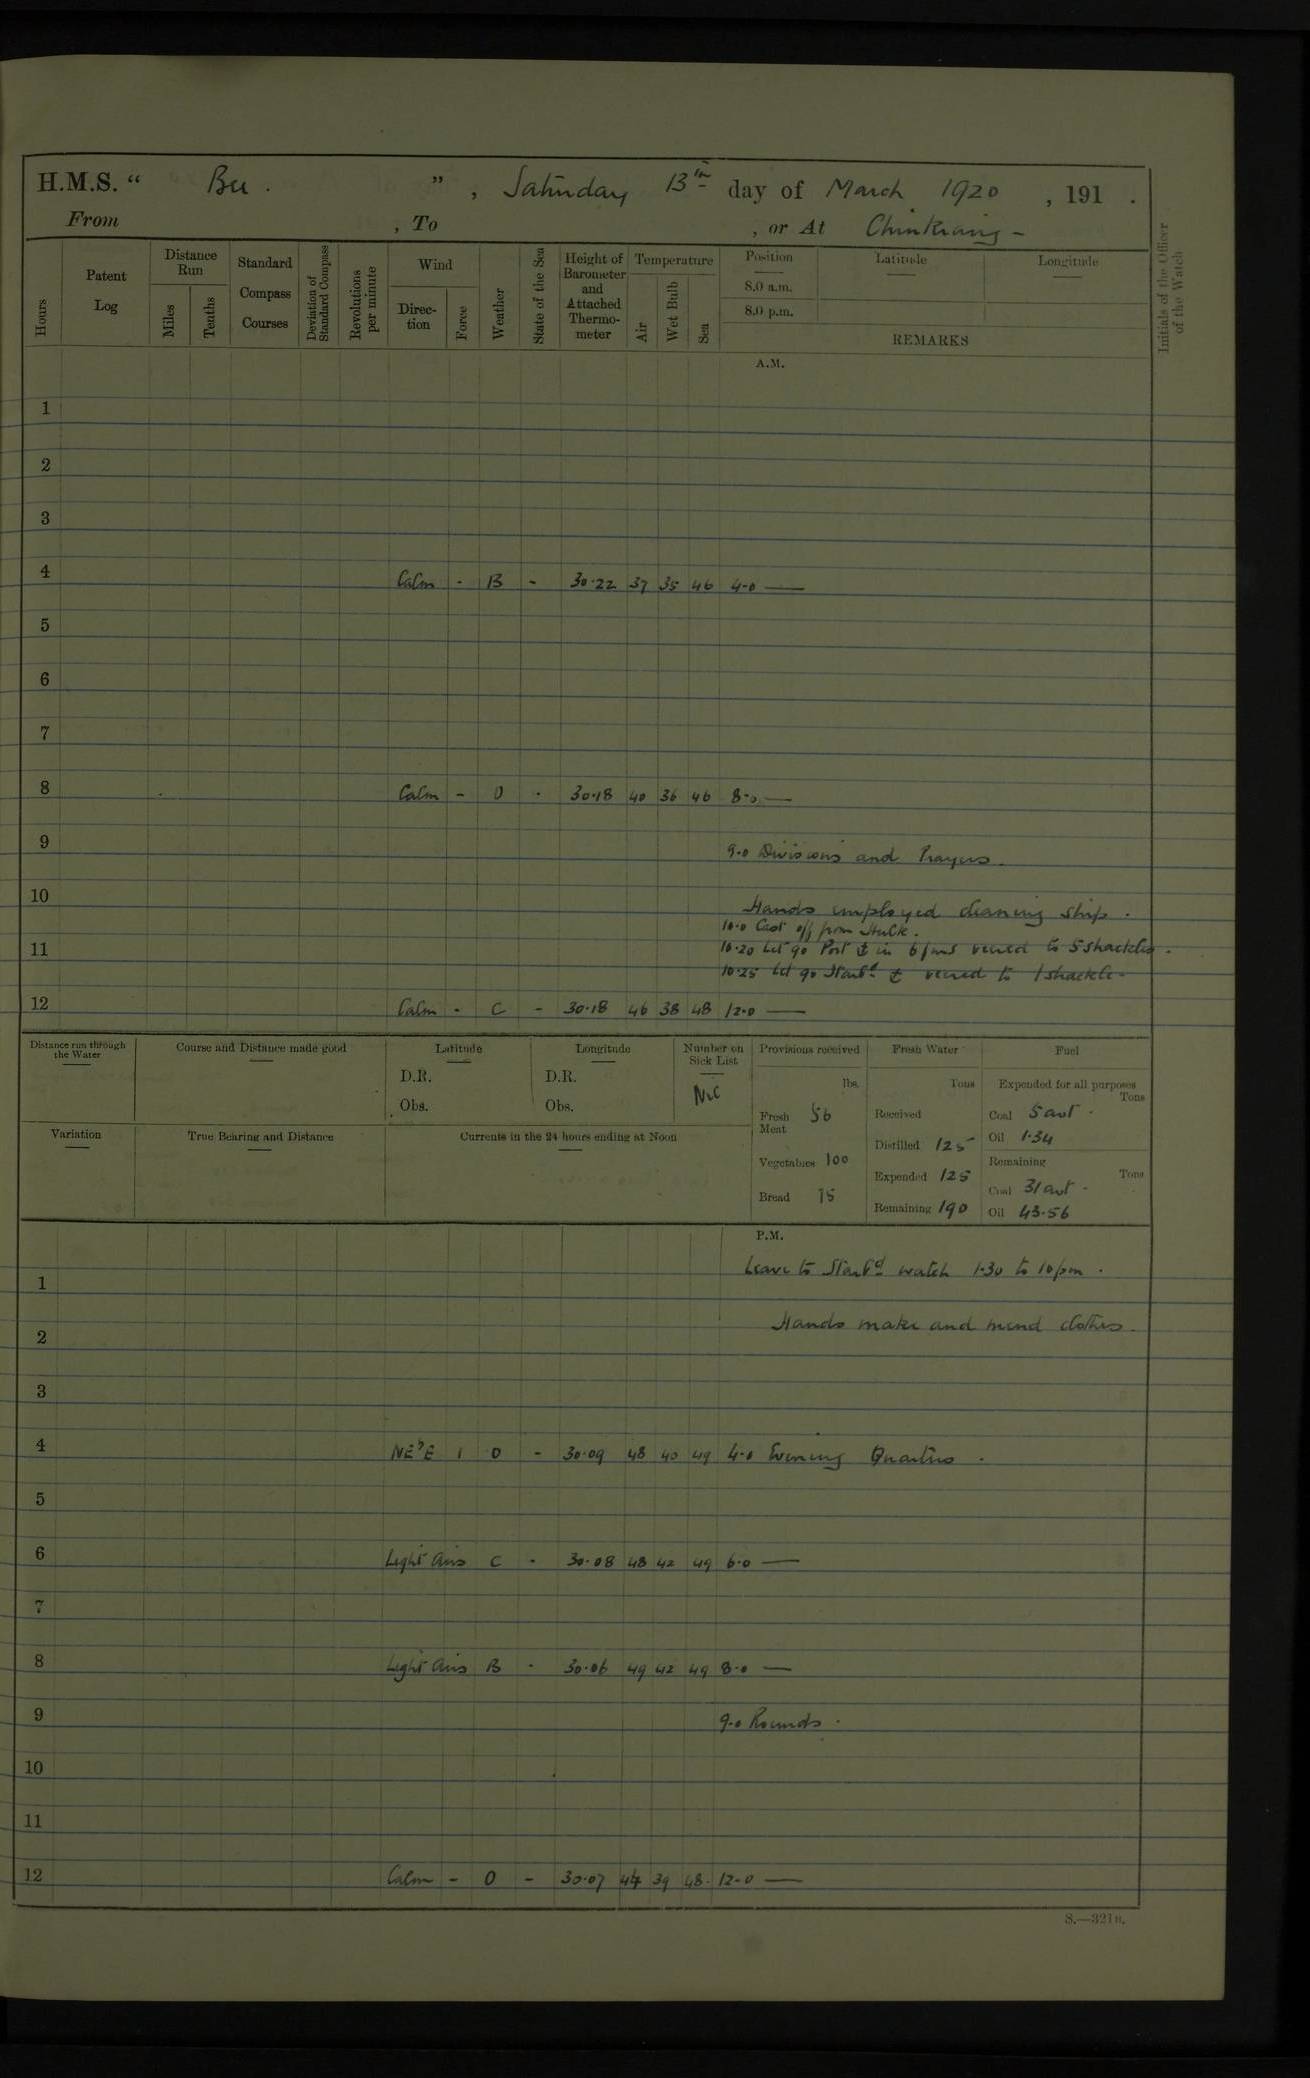 H.M.S. “ Bee . ” , Saturday 13th day of March 1920 , 191 .
From , To , or At Chinkiang -
Hours
Patent Log
Distance Run
Miles
Tenths
Standard Compass Courses
Deviation of Standard Compass
Revolutions per minute
Wind
Direc-tion
Force
Weather
State of the Sea
Height of Barometer and Attached Thermo-meter
Temperature
Air
Wet Bulb
Sea
Position
8.0 a.m.
8.0 p.m.
Latitude
Longitude
REMARKS
Initials of the Officer of the Watch
A.M.
1
2
3
4 Calm - B - 30.22 37 35 46 4-0 —
5
6
7
8 Calm - O - 30.18 40 36 46 8-0 —
9 9-0 Divisions and Prayers.
10 Hands employed cleaning ship.
10-0 Cast off from Hulk.
11 10-20 Let go Port ⚓ in 6 fms veered to 5 shackles.
10-25 Let go Starbd ⚓ veered to 1 shackle.
12 Calm - C - 30.18 46 38 48 12-0 —
Distance run through the Water
Course and Distance made good
Latitude
D.R.
Obs.
Longitude
D.R.
Obs.
Number on Sick List
Nil
Provisions received
lbs.
Fresh Meat 56
Vegetables 100
Bread 75
Fresh Water
Tons
Received
Distilled 125
Expended 125
Remaining 190
Fuel
Expended for all purposes
Tons
Coal 5 cwt.
Oil 1.34
Remaining
Tons
Coal 31 cwt.
Oil 43.56
Variation
True Bearing and Distance
Currents in the 24 hours ending at Noon
P.M.
Leave to Starbd watch 1-30 to 10 pm.
1
Hands make and mend clothes.
2
3
4 NE'E 1 O - 30.09 48 40 49 4-0 Evening Quarters.
5
6 Light airs C - 30.08 48 42 49 6-0 —
7
8 Light airs B - 30.06 49 42 49 8-0 —
9 9-0 Rounds.
10
11
12 Calm - O - 30.07 44 39 48 12-0 —
S.—321B.